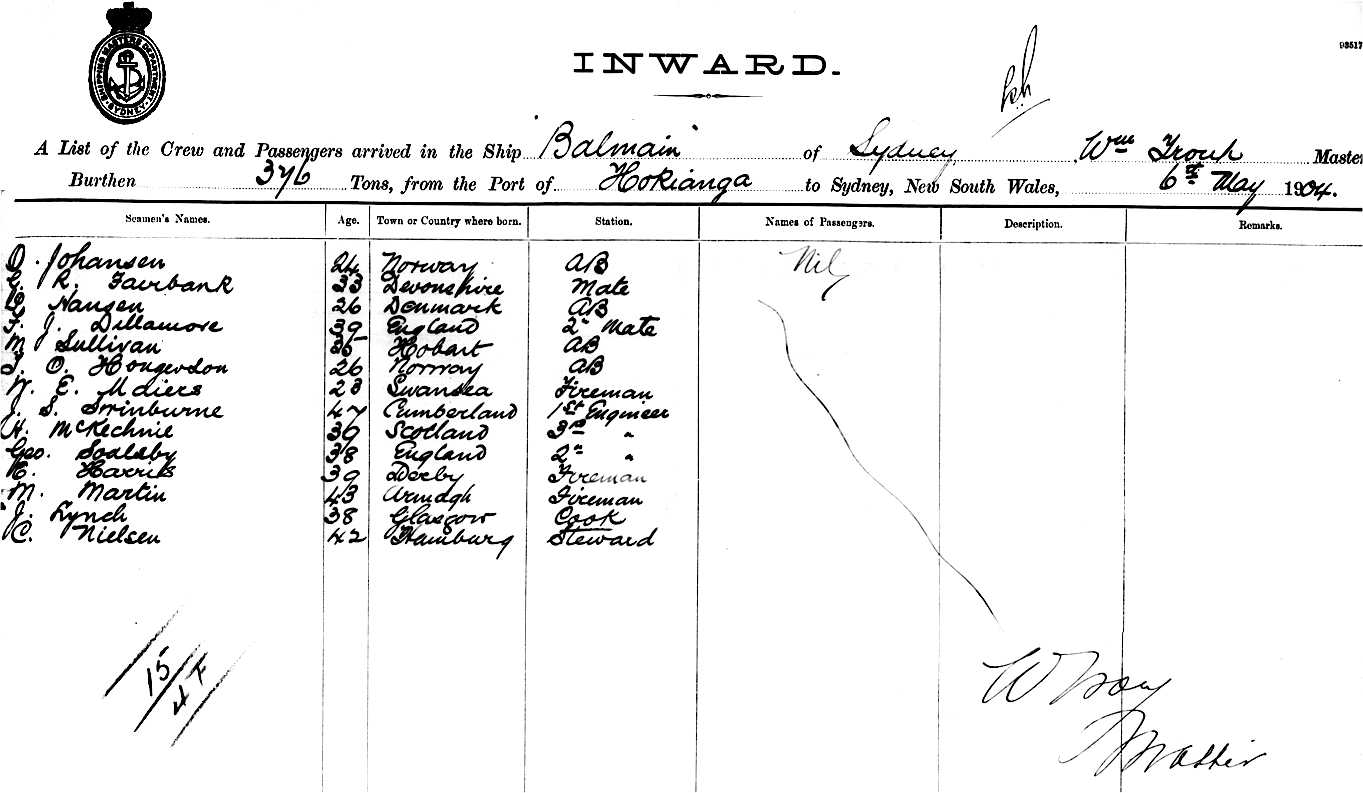 SHIPPING MASTER'S DEPARTMENT SYDNEY
93517
INWARD.
A List of the Crew and Passengers arrived in the Ship "Balmain" of Sydney Wm Master
Burthen 376 Tons, from the Port of Hokianga to Sydney, New South Wales, 6th May 1904.
Seamen's Names. Age. Town or Country where born. Station. Names of Passengers. Description. Remarks.
O. Johansen 24 Norway AB Nil
R. Fairbank 33 Devonshire Mate
Hansen 26 Denmark AB
J. Dillamore 39 England 2n Mate
M Sullivan Hobart AB
O. Hougerdon 26 Norway AB
W. E. Maiers 23 Swansea Fireman
J. S. Swinburne 47 Cumberland 1st Engineer
A. McKechnie 39 Scotland 3rd "
Geo. Soalsby 38 England 2n "
Harris 39 Derby Fireman
M. Martin 43 Armagh Fireman
J. Lynch 38 Glasgow Cook
C. Nielsen 42 Hamburg Steward
15
4 F
W
Master